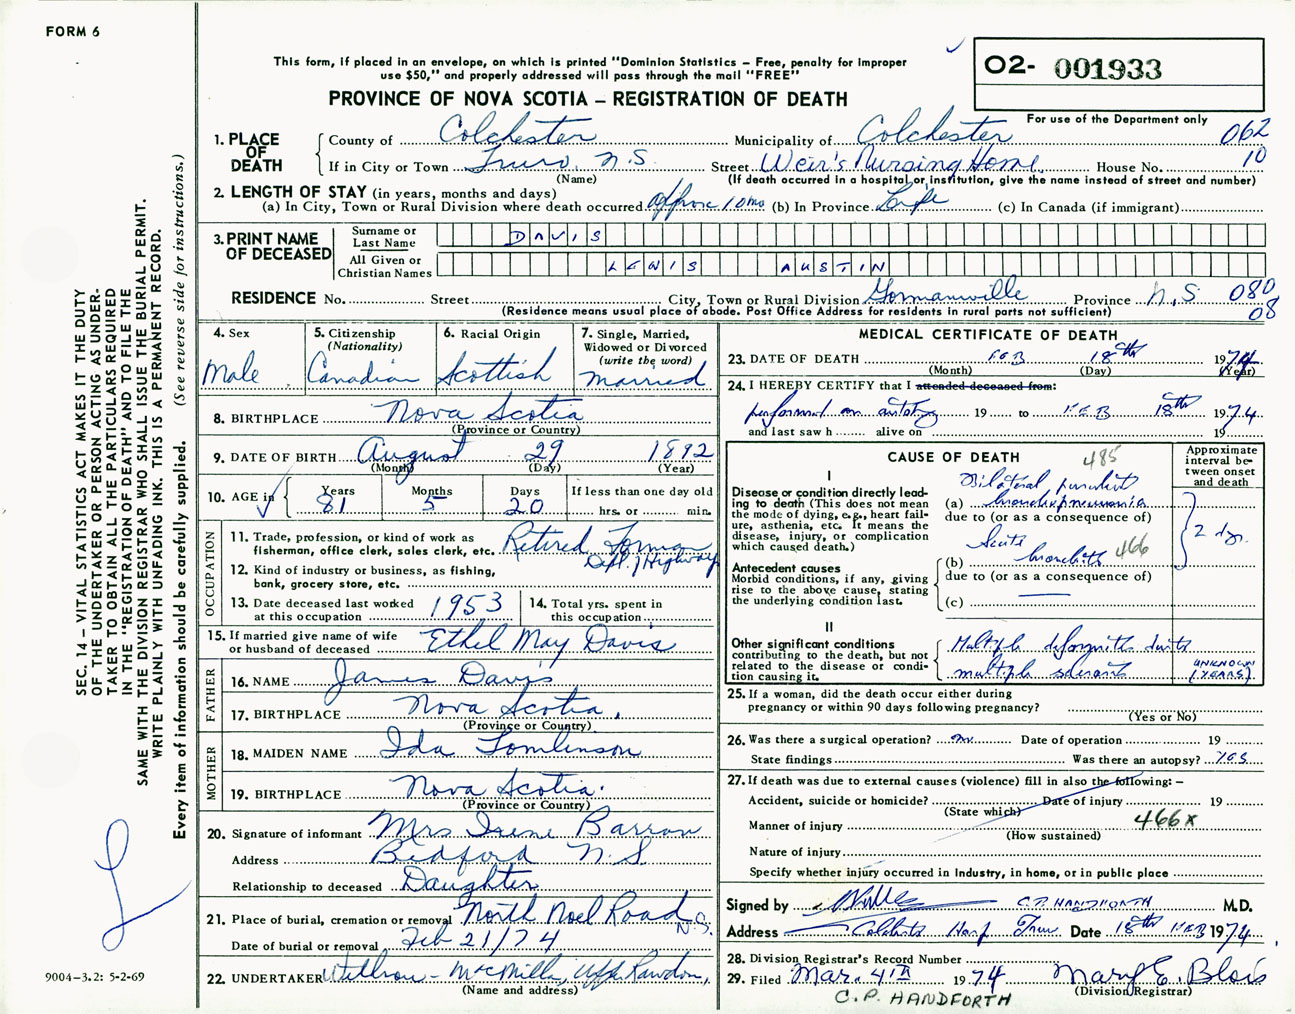 FORM 6
This form, if placed in an envelope, on which is printed "Dominion Statistics – Free, penalty for improper
use $50," and properly addressed will pass through the mail "FREE"
PROVINCE OF NOVA SCOTIA – REGISTRATION OF DEATH
O2- 001933
For use of the Department only
062
10
1. PLACE OF DEATH
County of Colchester Municipality of Colchester
If in City or Town Truro, N.S. Street Weir's Nursing Home House No.
(Name) (If death occurred in a hospital or institution, give the name instead of street and number)
2. LENGTH OF STAY (in years, months and days)
(a) In City, Town or Rural Division where death occurred approx 10 mo (b) In Province Life (c) In Canada (if immigrant)
3. PRINT NAME OF DECEASED
Surname or Last Name DAVIS
All Given or Christian Names LEWIS AUSTIN
RESIDENCE No. Street City, Town or Rural Division Gormanville Province N.S 080
08
(Residence means usual place of abode. Post Office Address for residents in rural parts not sufficient)
4. Sex
Male
5. Citizenship
(Nationality)
Canadian
6. Racial Origin
Scottish
7. Single, Married,
Widowed or Divorced
(write the word)
Married
8. BIRTHPLACE Nova Scotia
(Province or Country)
9. DATE OF BIRTH August 29 1892
(Month) (Day) (Year)
10. AGE in Years Months Days If less than one day old
81 5 20 hrs. or min.
OCCUPATION
11. Trade, profession, or kind of work as
fisherman, office clerk, sales clerk, etc. Retired Forman
12. Kind of industry or business, as fishing,
bank, grocery store, etc. Dept. Highway
13. Date deceased last worked
at this occupation 1953
14. Total yrs. spent in
this occupation
15. If married give name of wife
or husband of deceased Ethel May Davis
FATHER
16. NAME James Davis
17. BIRTHPLACE Nova Scotia,
(Province or Country)
MOTHER
18. MAIDEN NAME Ida Tomlinson
19. BIRTHPLACE Nova Scotia.
(Province or Country)
20. Signature of informant Mrs Irene Barron
Address Bedford N.S.
Relationship to deceased Daughter
21. Place of burial, cremation or removal North Noel Road
N.S.
Date of burial or removal Feb 21/74
22. UNDERTAKER - McMillan, Upp. Rawdon,
(Name and address)
MEDICAL CERTIFICATE OF DEATH
23. DATE OF DEATH FEB 18th 1974
(Month) (Day) (Year)
24. I HEREBY CERTIFY that I attended deceased from:
performed an autopsy 19 to FEB 18th 1974
and last saw h alive on 19
CAUSE OF DEATH 485
Approximate
interval be-
tween onset
and death
I
Disease or condition directly lead-
ing to death (This does not
mean the mode of dying, e.g., heart fail-
ure, asthenia, etc. It means the
disease, injury, or complication
which caused death.)
Bilateral purulent
(a) bronchopneumonia
due to (or as a consequence of)
2 dys.
Acute
(b) bronchitis 466
due to (or as a consequence of)
(c)
Antecedent causes
Morbid conditions, if any, giving
rise to the above cause, stating
the underlying condition last.
II
Other significant conditions
contributing to the death, but not
related to the disease or condi-
tion causing it.
Multiple deformities due to
multiple sclerosis
UNKNOWN
(YEARS).
25. If a woman, did the death occur either during
pregnancy or within 90 days following pregnancy?
(Yes or No)
26. Was there a surgical operation? no Date of operation 19
State findings Was there an autopsy? YES
27. If death was due to external causes (violence) fill in also the following: –
Accident, suicide or homicide? Date of injury 19
(State which)
Manner of injury 466x
(How sustained)
Nature of injury
Specify whether injury occurred in industry, in home, or in public place
Signed by C.P. HANDFORTH M.D.
Address Colchester Hosp Truro Date 18th FEB 1974.
28. Division Registrar's Record Number
29. Filed Mar. 4th 1974 Mary E. Blois
(Division Registrar)
C.P. HANDFORTH
SEC. 14 – VITAL STATISTICS ACT MAKES IT THE DUTY
OF THE UNDERTAKER OR PERSON ACTING AS UNDER-
TAKER TO OBTAIN ALL THE PARTICULARS REQUIRED
IN THE "REGISTRATION OF DEATH" AND TO FILE THE
SAME WITH THE DIVISION REGISTRAR WHO SHALL ISSUE THE BURIAL PERMIT.
WRITE PLAINLY WITH UNFADING INK. THIS IS A PERMANENT RECORD.
Every item of information should be carefully supplied. (See reverse side for instructions.)
9004–3.2: 5-2-69